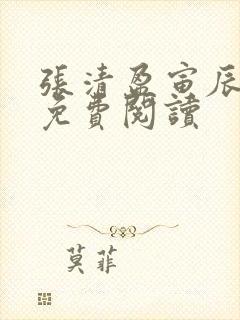 張清盈寅辰
免費閱讀
莫菲